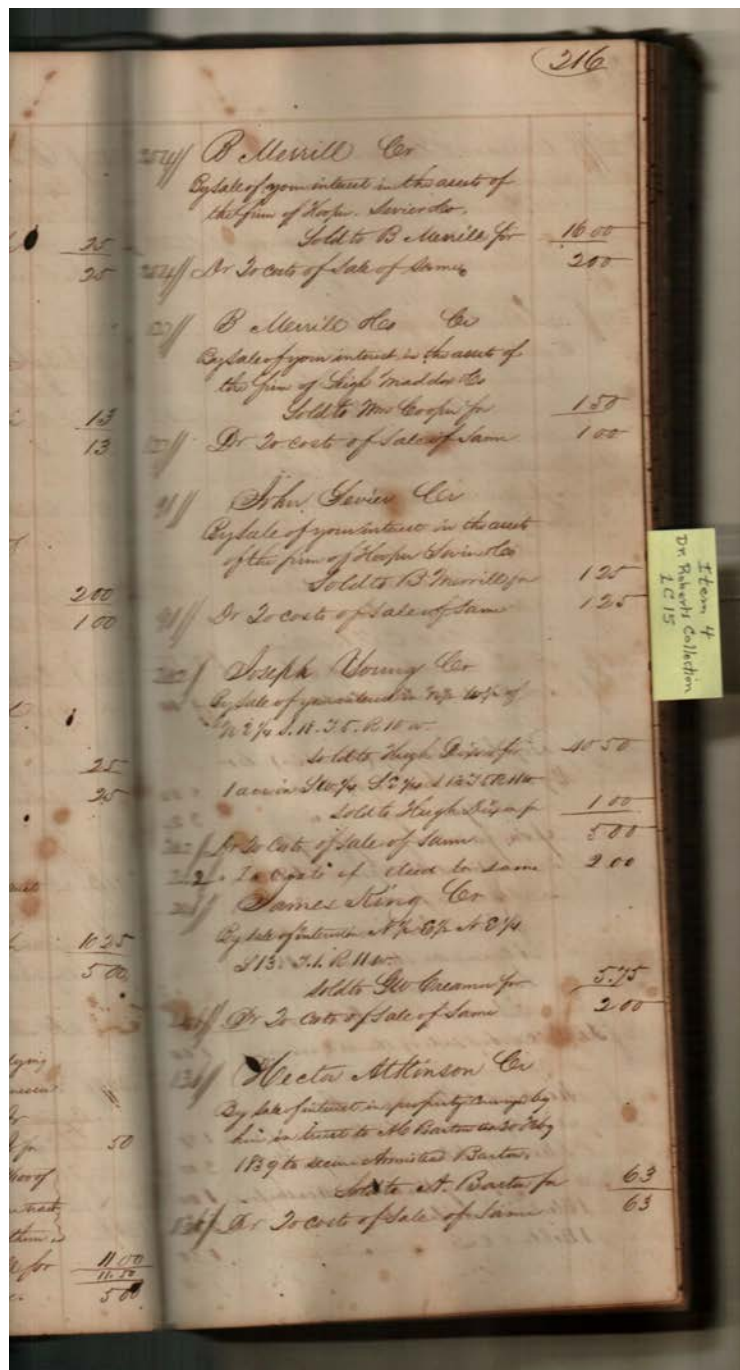 216
254 B Merrill Cr
By sale of your interest in the assets of
the firm of Hooper. Sevier & Co.
Sold to B Merrill for 16 00
254 Dr To costs of Sale of Same 2 00
B Merrill & Co Cr
By sale of your interest in the assets of
the firm of Leigh Maddox & Co
Sold to Wm Cooper for 1 50
Dr To costs of Sale of Same 1 00
91 John Sevier Cr
By sale of your interest in the assets
of the firm of Hooper Sevier & Co
Sold to B Merrill for 1 25
91 Dr To costs of sale of Same 1 25
Joseph Young Cr
By sale of your interest in W½ of
N E ¼ S. 18. T. 5. R. 10 W.
sold to Hugh Dixon for 40 50
1 acre in S W ¼ S E ¼ T 5 R 11 W
sold to Hugh Dixon for 1 00
Dr To Costs of sale of Same 5 00
2 " To Costs of deed to same 2 00
James King Cr
By sale of interest in N ½ E ½ N E ¼
S 13. T. 1. R 11 W.
sold to GW Creamer for 5.75
Dr To Costs of Sale of Same 2 00
Hector Atkinson Cr
By sale of interest in property conveyed by
him in trust to A C Barton on 20 Feby
1839 to secure Armistead Barton.
Sold to A. Barton for 63
Dr To costs of Sale of Same 63
Item 4
Dr. Roberts Collection
LC15
25
25
13
13
200
1 00
25
25
10 25
5 00
50
for 11 00
11.50
5 00